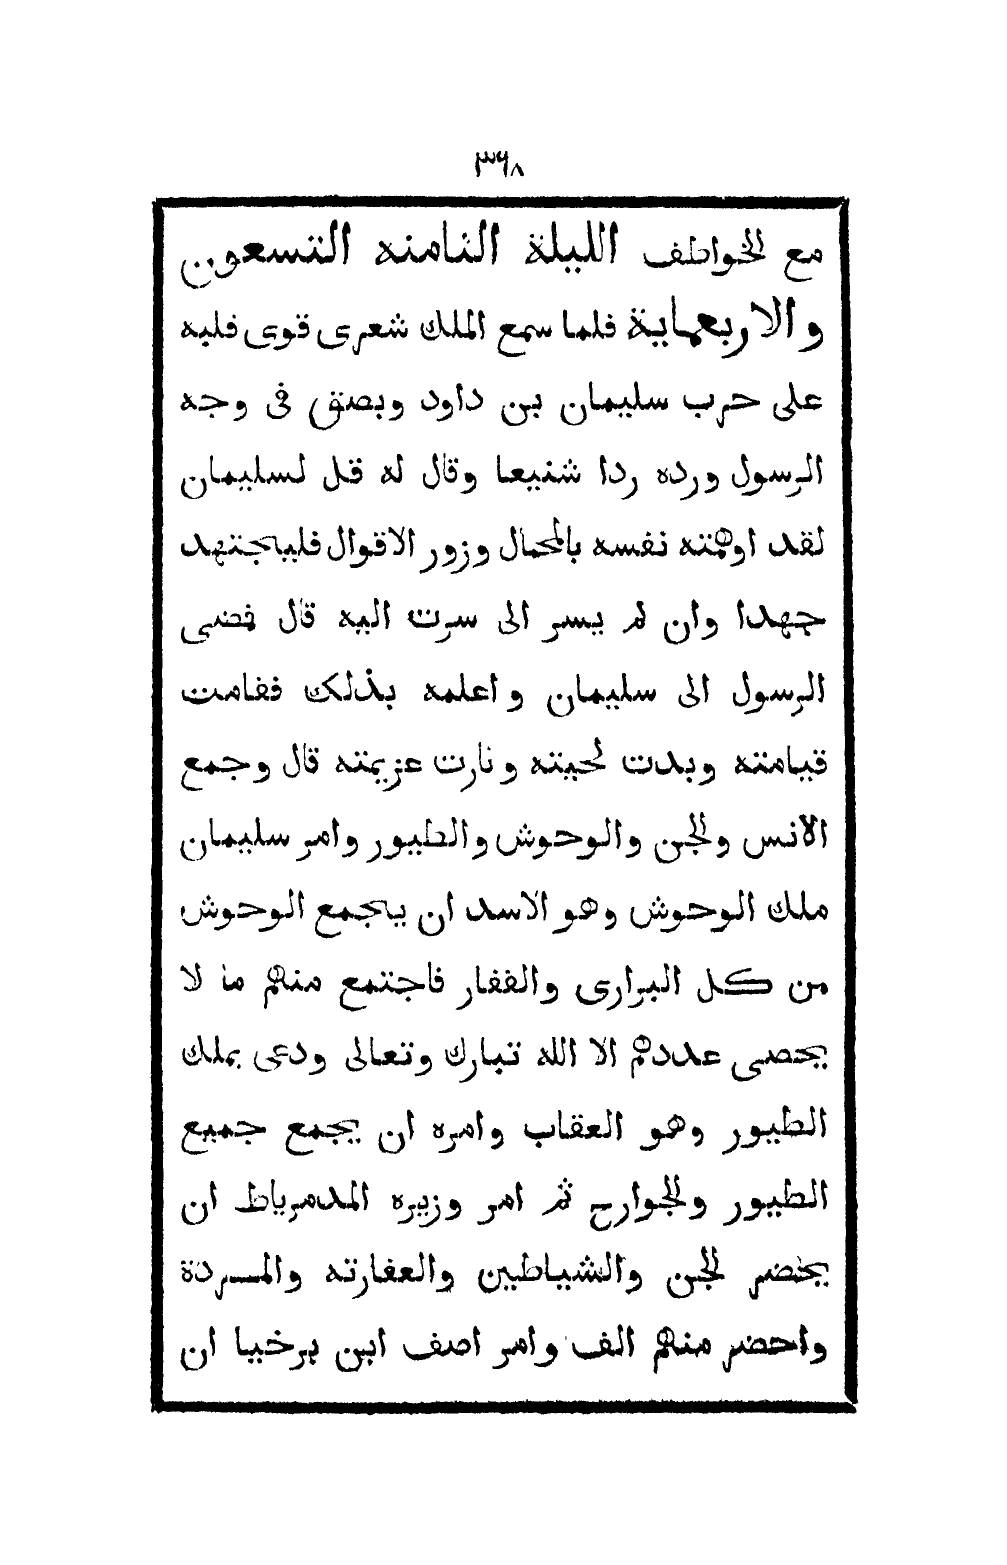 ٣٦٨
مع الخواطف الليلة الثامنه التسعون
والاربعماية فلما سمع الملك شعرى قوى قلبه
على حرب سليمان بن داود وبصق فى وجه
الرسول ورده ردا شنيعا وقال له قل لسليمان
لقد اوهمته نفسه بالمحال وزور الاقوال فليجتهد
جهدا وان لم يسر الى سرت اليه قال فضى
الرسول الى سليمان واعلمه بذلك فقامت
قيامته وبدت لحيته وثارت عزيمته قال وجمع
الانس والجن والوحوش والطيور وامر سليمان
ملك الوحوش وهو الاسد ان يجمع الوحوش
من كل البرارى والقفار فاجتمع منهم ما لا
يحصى عددهم الا الله تبارك وتعالى ودعى بملك
الطيور وهو العقاب وامره ان يجمع جميع
الطيور والجوارح ثم امر وزيره المدمرياط ان
يحضر الجن والشياطين والعفارته والمسردة
واحضر منهم الف وامر اصف ابن برخيا ان